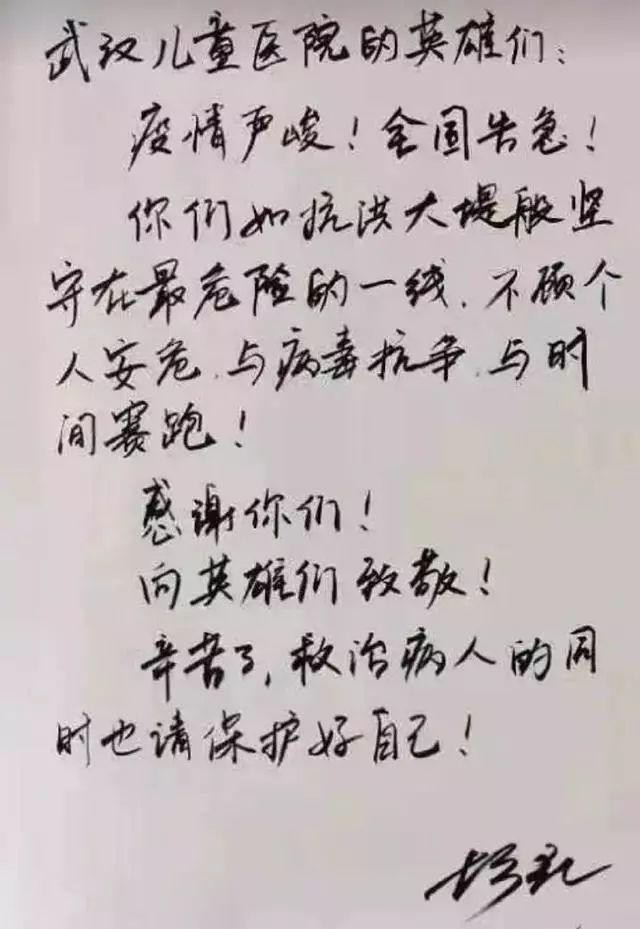 武汉儿童医院的英雄们：
疫情严峻！全国告急！
你们如抗洪大堤般坚
守在最危险的一线，不顾个
人安危，与病毒抗争，与时
间赛跑！
感谢你们！
向英雄们致敬！
辛苦了，救治病人的同
时也请保护好自己！